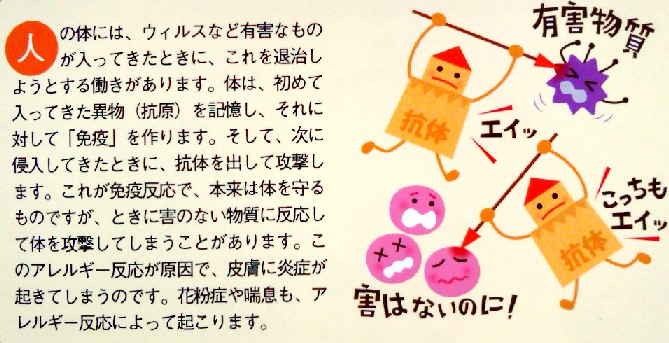 人の体には、ウィルスなど有害なもの
が入ってきたときに、これを退治し
ようとする働きがあります。体は、初めて
入ってきた異物（抗原）を記憶し、それに
対して「免疫」を作ります。そして、次に
侵入してきたときに、抗体を出して攻撃し
ます。これが免疫反応で、本来は体を守る
ものですが、ときに害のない物質に反応し
て体を攻撃してしまうことがあります。こ
のアレルギー反応が原因で、皮膚に炎症が
起きてしまうのです。花粉症や喘息も、ア
レルギー反応によって起こります。
有害物質
抗体
エイッ
こっちも
エイッ
抗体
害はないのに！